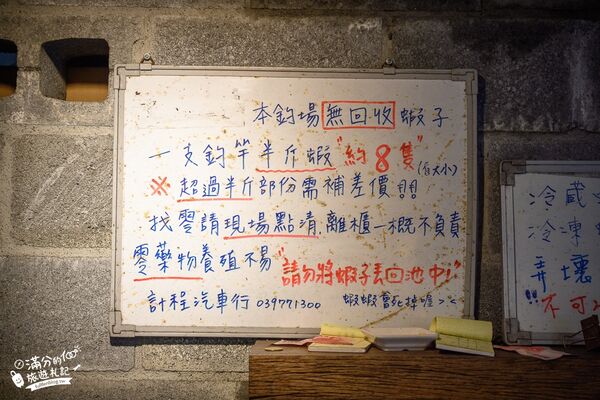 本釣場無回收蝦子
一支釣竿半斤蝦"約8隻"(含大小)
※超過半斤部份需補差價!!
找零請現場點清,離櫃一概不負責
零藥物養殖不易"請勿將蝦子丟回池中!"
計程汽車行 039771300 蝦蝦會死掉喔>"<
冷藏
冷凍
弄壞
!!不可
滿分的
旅遊札記